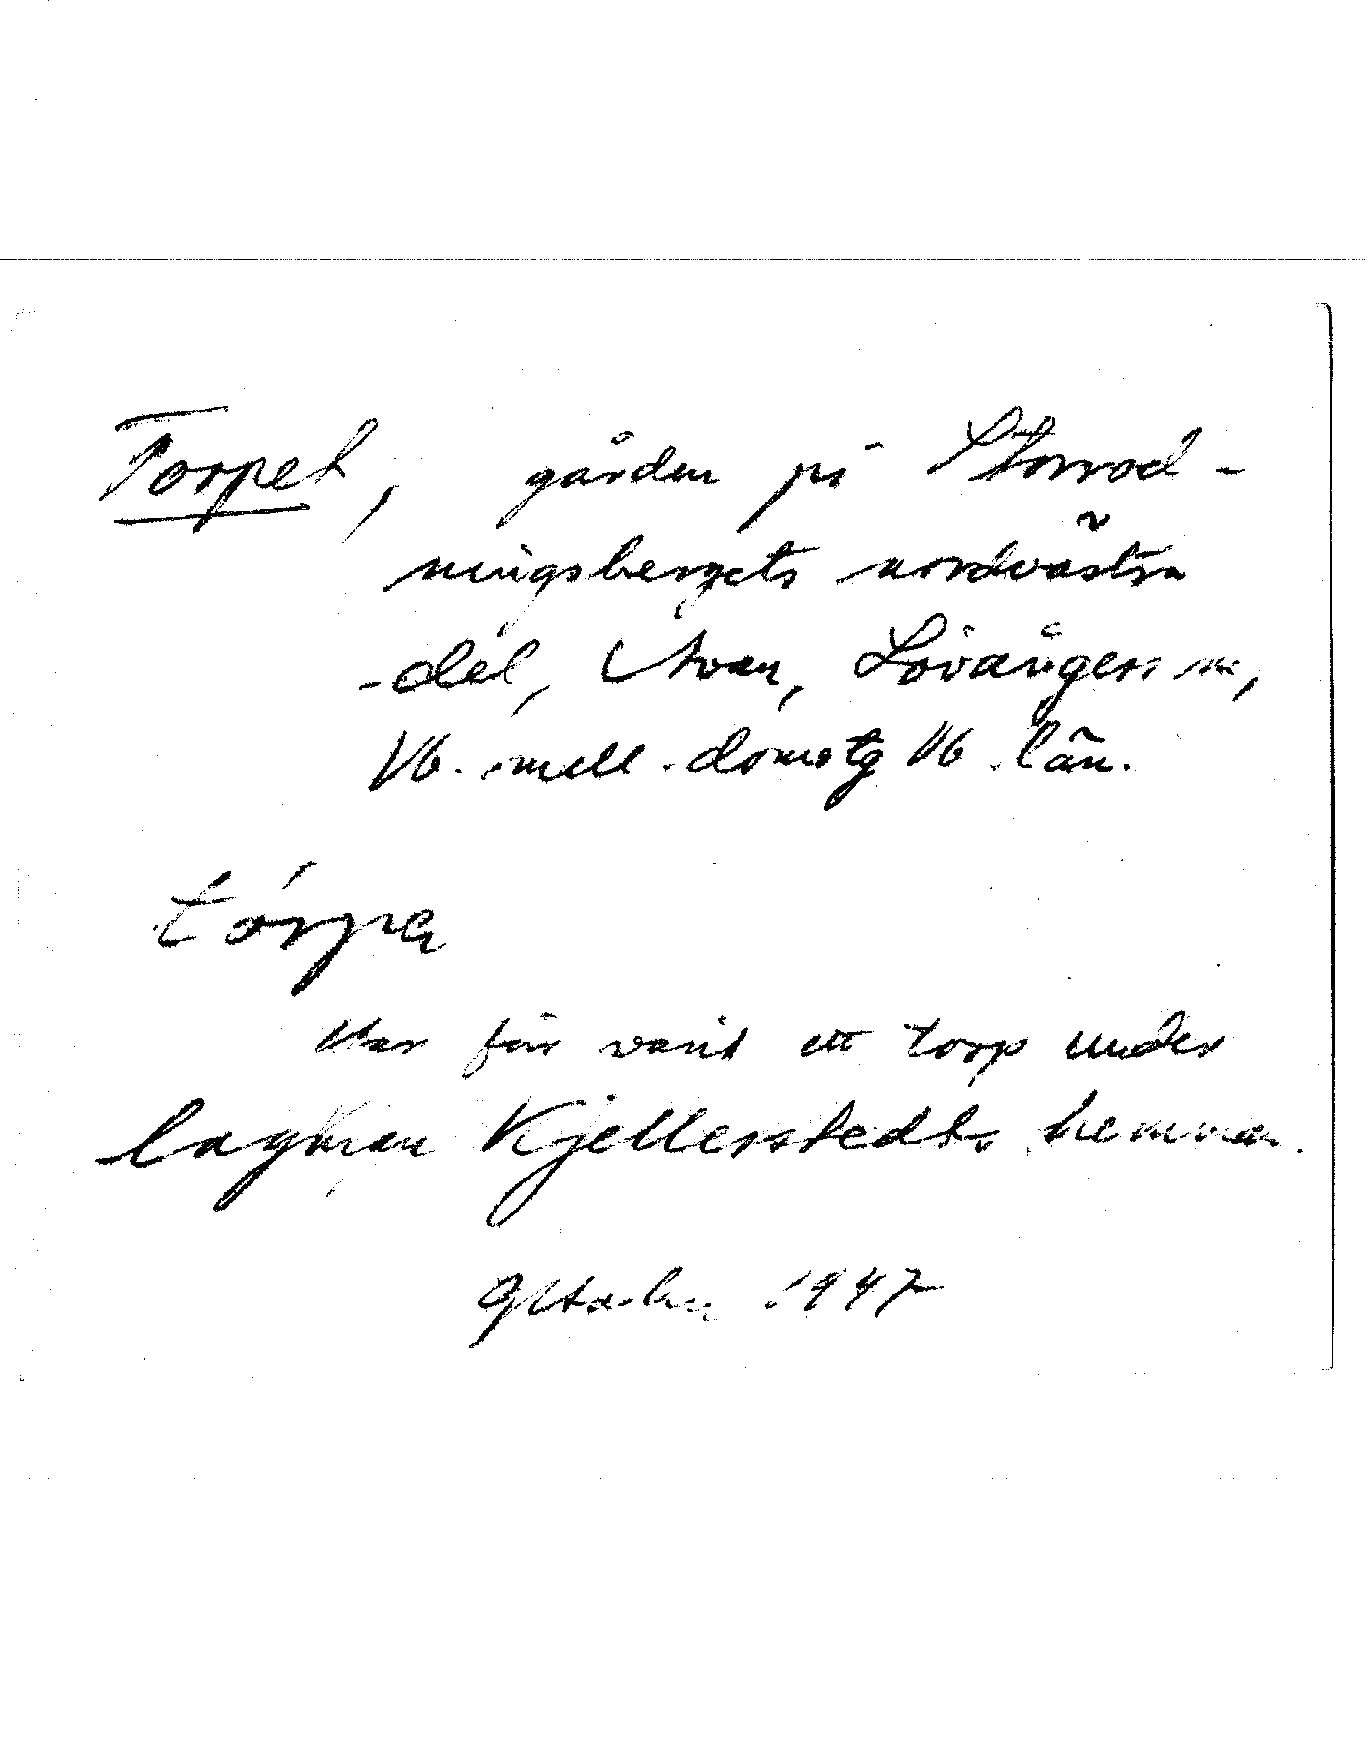 Torpet, gården på Storrod-
ningsbergets nordvästra
del, Avan, Lövångers sn,
Vb. mell. domstg Vb. län.
tórpa
Har förr varit ett torp under
lagman Kjellerstedts hemman.
1947